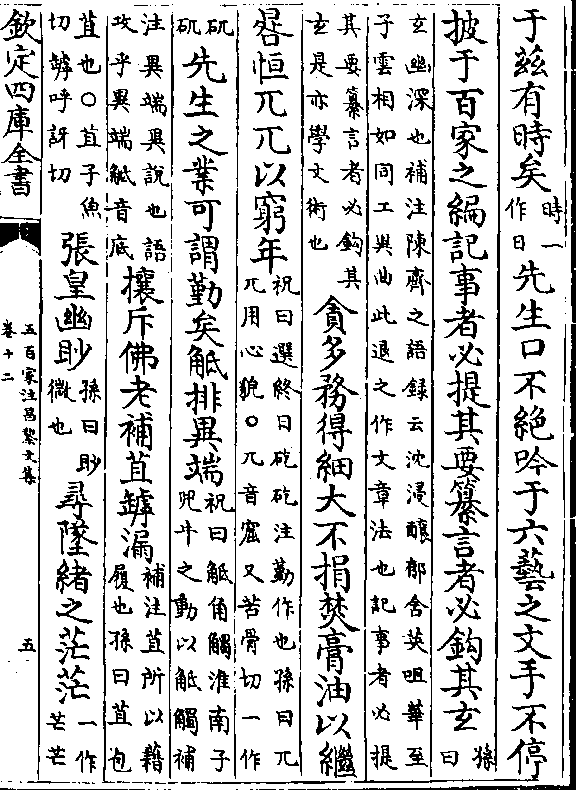 于兹有時矣時一作日先生口不絕吟于六藝之文手不停
披于百家之編記事者必提其要纂言者必鈎其玄孫曰
玄幽深也補注陳齊之語録云沈浸醲郁含英咀華至
子雲相如同工異曲此退之作文章法也記事者必提
其要纂言者必鈎其玄是亦學文術也貪多務得細大不捐焚膏油以繼
晷恒兀兀以窮年祝曰選終日矻矻注勤作也孫曰兀兀用心貌○兀音窟又苦骨切一作
矻矻先生之業可謂勤矣觝排異端祝曰觝角觸淮南子兕牛之動以觝觸補
注異端異說也語攻乎異端觝音底攘斥佛老補苴罅漏補注苴所以藉履也孫曰苴包
苴也○苴子魚切罅呼訝切張皇幽眇孫曰眇微也尋墜緒之茫茫一作芒芒
欽定四庫全書
五百家注昌黎文集
卷十二
五